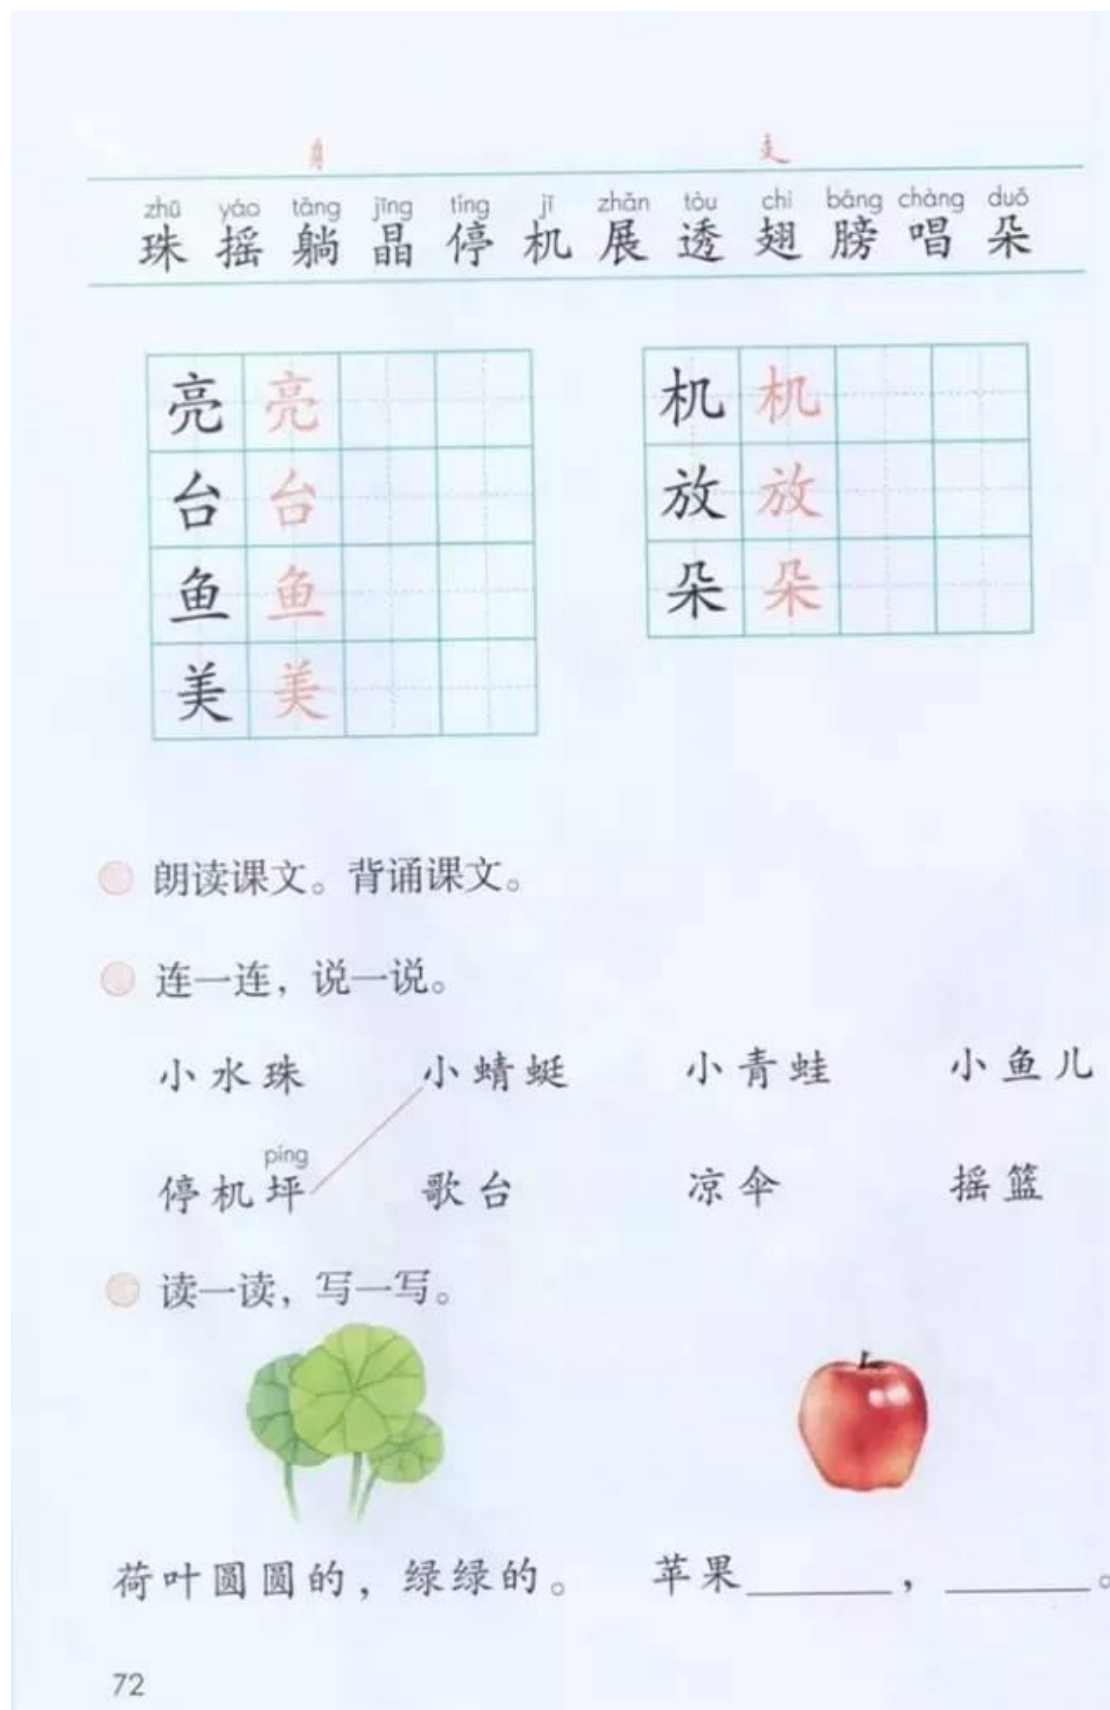 ⺼ 支
zhū yáo tǎng jīng tíng jī zhǎn tòu chì bǎng chàng duǒ
珠 摇 躺 晶 停 机 展 透 翅 膀 唱 朵
亮 亮 机 机
台 台 放 放
鱼 鱼 朵 朵
美 美
朗读课文。背诵课文。
连一连，说一说。
小水珠 小蜻蜓 小青蛙 小鱼儿
píng
停机坪 歌台 凉伞 摇篮
读一读，写一写。
荷叶圆圆的，绿绿的。 苹果______，______。
72